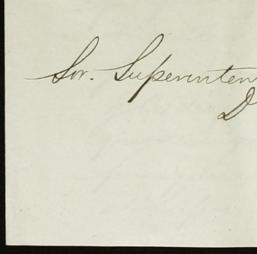 Sor. Superinten
D